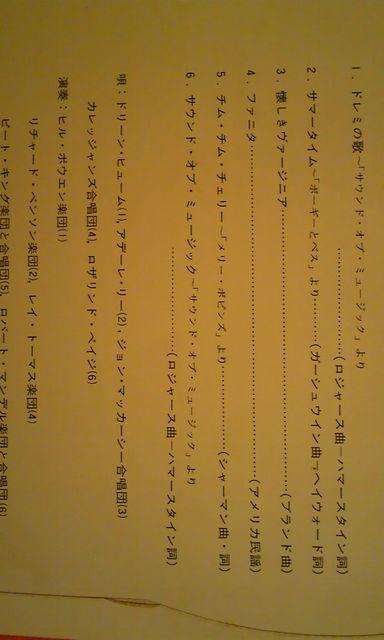 1．ドレミの歌～「サウンド・オブ・ミュージック」より
……………(ロジャース曲―ハマースタイン詞)
2．サマータイム～「ポーギーとベス」より………(ガーシュウイン曲―ヘイウォード詞)
3．懐しきヴァージニア……………………………………(ブランド曲)
4．ファニタ………………………………………………(アメリカ民謡)
5．チム・チム・チェリー～「メリー・ポピンズ」より……………(シャーマン曲・詞)
6．サウンド・オブ・ミュージック～「サウンド・オブ・ミュージック」より
……………(ロジャース曲―ハマースタイン詞)
唄：ドリーン・ヒューム(1)，アデーレ・リー(2)・ジョン・マッカーシー合唱団(3)
カレッジャンズ合唱団(4)，ロザリンド・ペイジ(6)
演奏：ヒル・ボウエン楽団(1)
リチャード・ベンソン楽団(2)，レイ・トーマス楽団(4)
ピート・キング楽団と合唱団(5)，ロバート・マンデル楽団と合唱団(6)